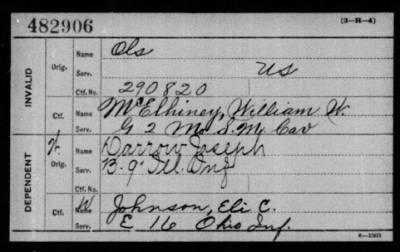 482906
(3-H-4)
INVALID
Orig.
Name
Ols
Serv.
US
Ctf. No.
290820
Ctf.
Name
McElhiney, William W.
Serv.
G 2 Mo S. M. Cav
DEPENDENT
W.
Orig.
Name
Darrow Joseph
Serv.
B-9" Ill. Inf
Ctf. No.
Ctf.
W
Name
Johnson, Eli C.
Serv.
E 16 Ohio Inf.
6-2563